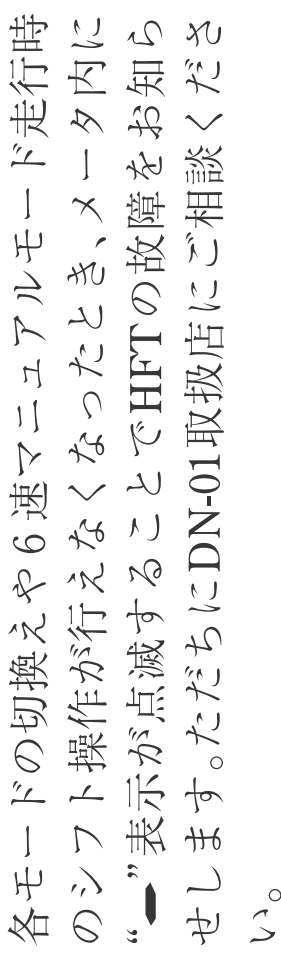 各モードの切換えや6速マニュアルモード走行時
のシフト操作が行えなくなったとき、メータ内に
“⬬”表示が点滅することでHFTの故障をお知ら
せします。ただちにDN-01取扱店にご相談くださ
い。